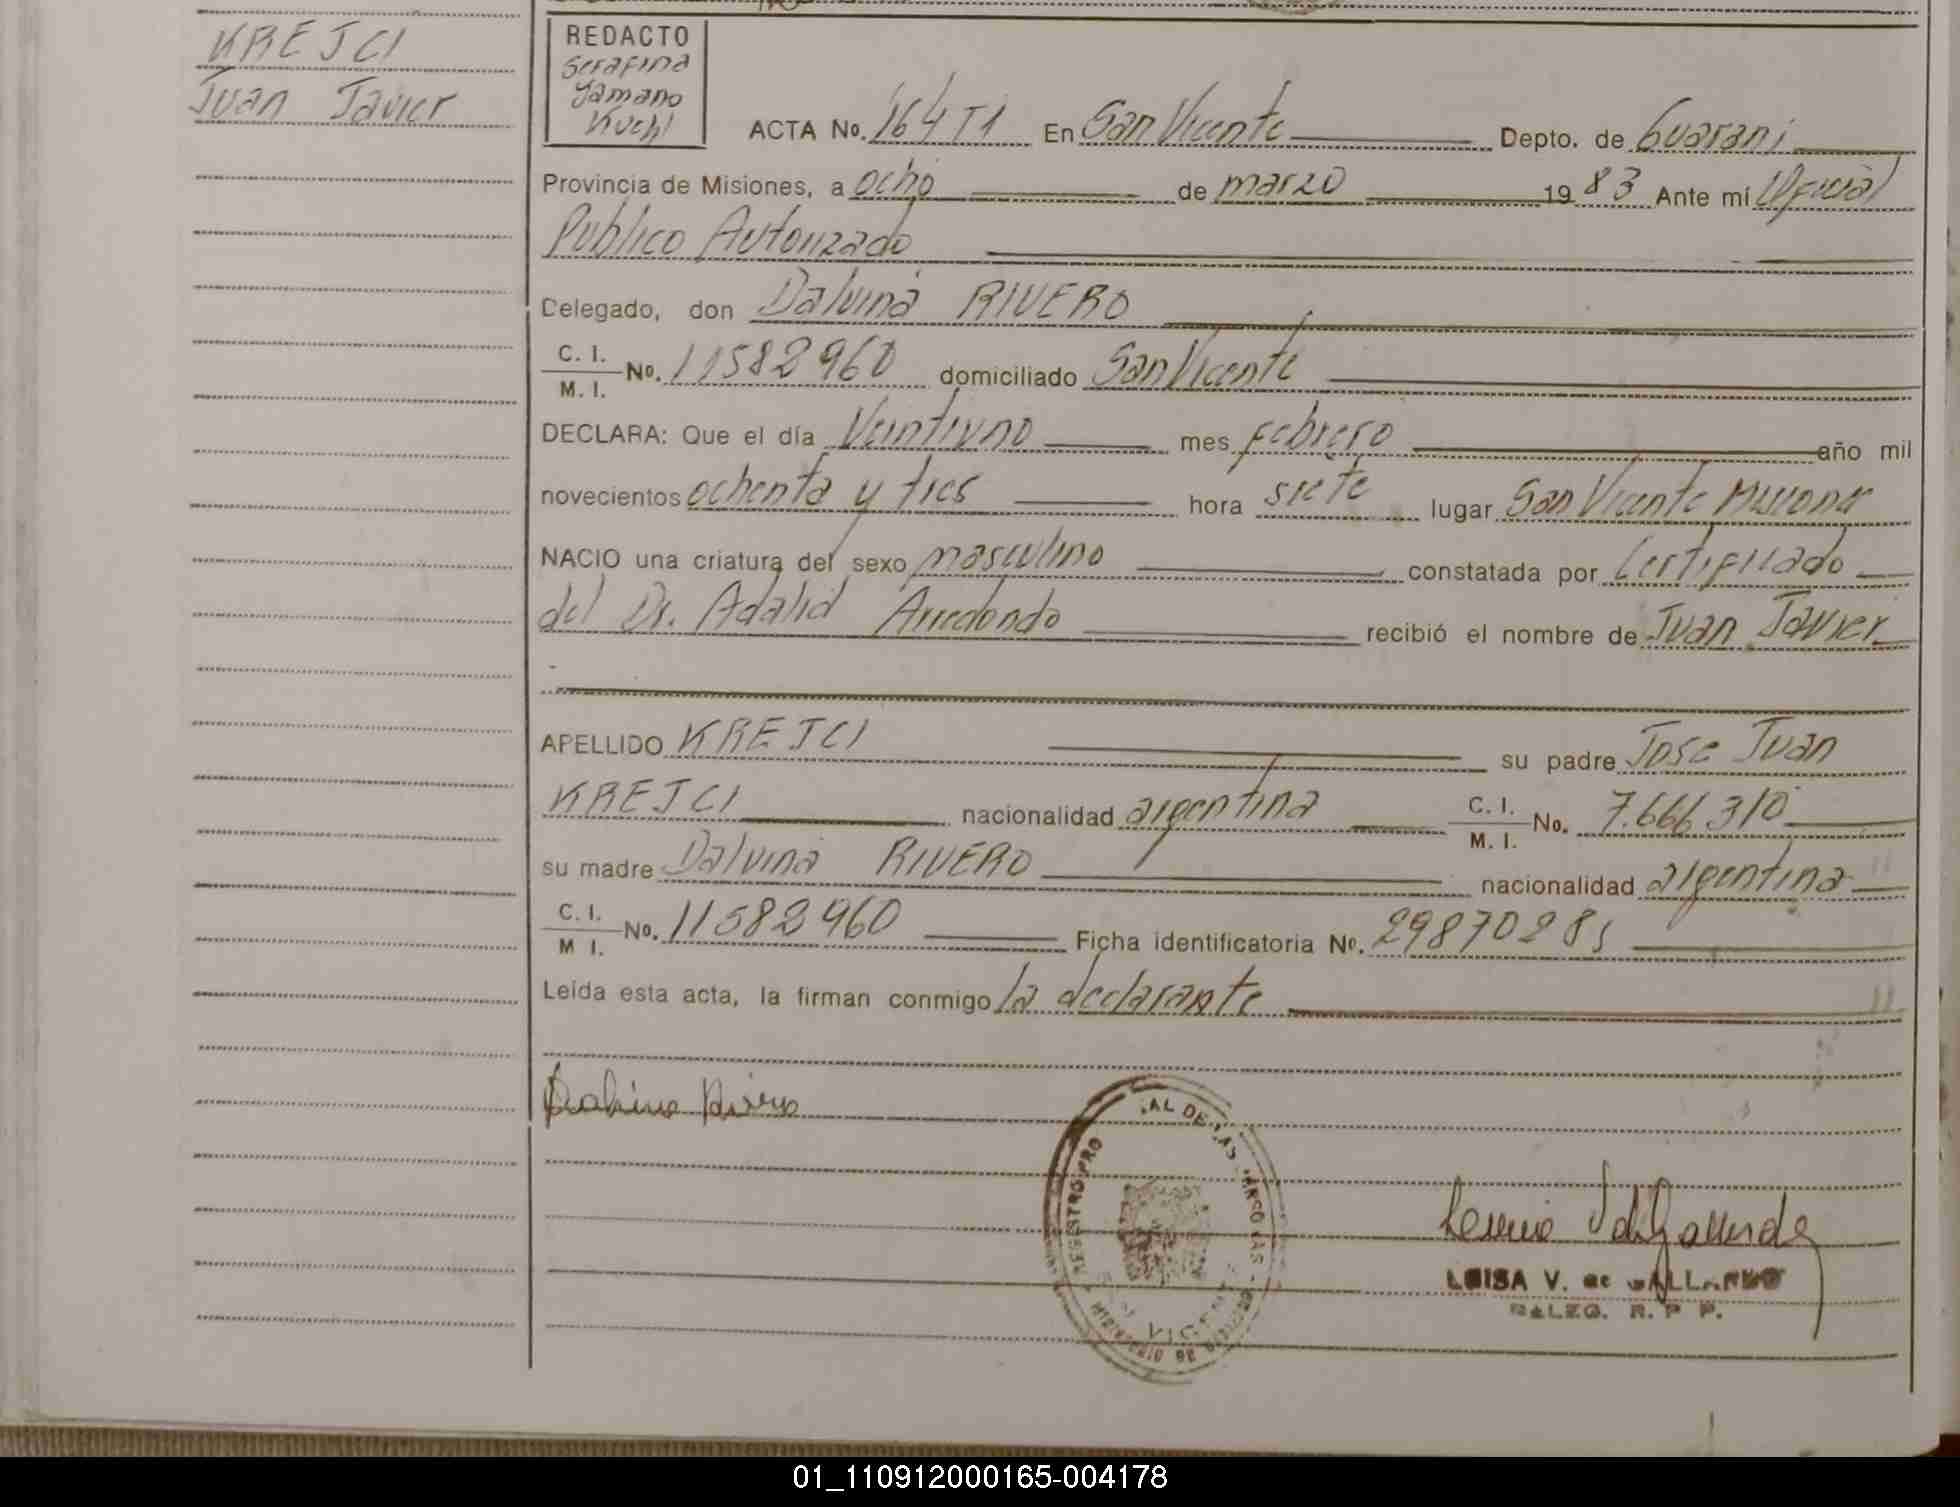 KREJCI
Juan Javier
REDACTO
Serafina
Yamano
Kuchl
ACTA No. 164 T1 En San Vicente Depto. de Guarani
Provincia de Misiones, a ocho de marzo 19 83 Ante mí Oficial
Publico Autorizado
Delegado, don Dalvina RIVERO
C. I.
M. I. No. 11582960 domiciliado San Vicente
DECLARA: Que el día Veintiuno mes febrero año mil
novecientos ochenta y tres hora siete lugar San Vicente Misiones
NACIO una criatura del sexo masculino constatada por Certificado
del Dr. Adalid Arredondo recibió el nombre de Juan Javier
APELLIDO KREJCI su padre Jose Juan
KREJCI nacionalidad argentina C. I.
M. I. No. 7.666.310
su madre Dalvina RIVERO nacionalidad argentina
C. I.
M I. No. 11582960 Ficha identificatoria No. 29870285
Leída esta acta, la firman conmigo la declarante
Dalvina Rivero
LUISA V. de GALLARDO
DELEG. R. P P.
01_110912000165-004178